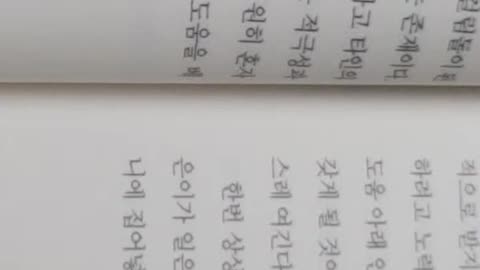 존재이다
타인의
적극성과
혼자
도움을 베
적으로 받기
하려고 노력
도움 아래
갖게 될 것이
스레 여긴다
한번 상상
은이가
니에 집어넣